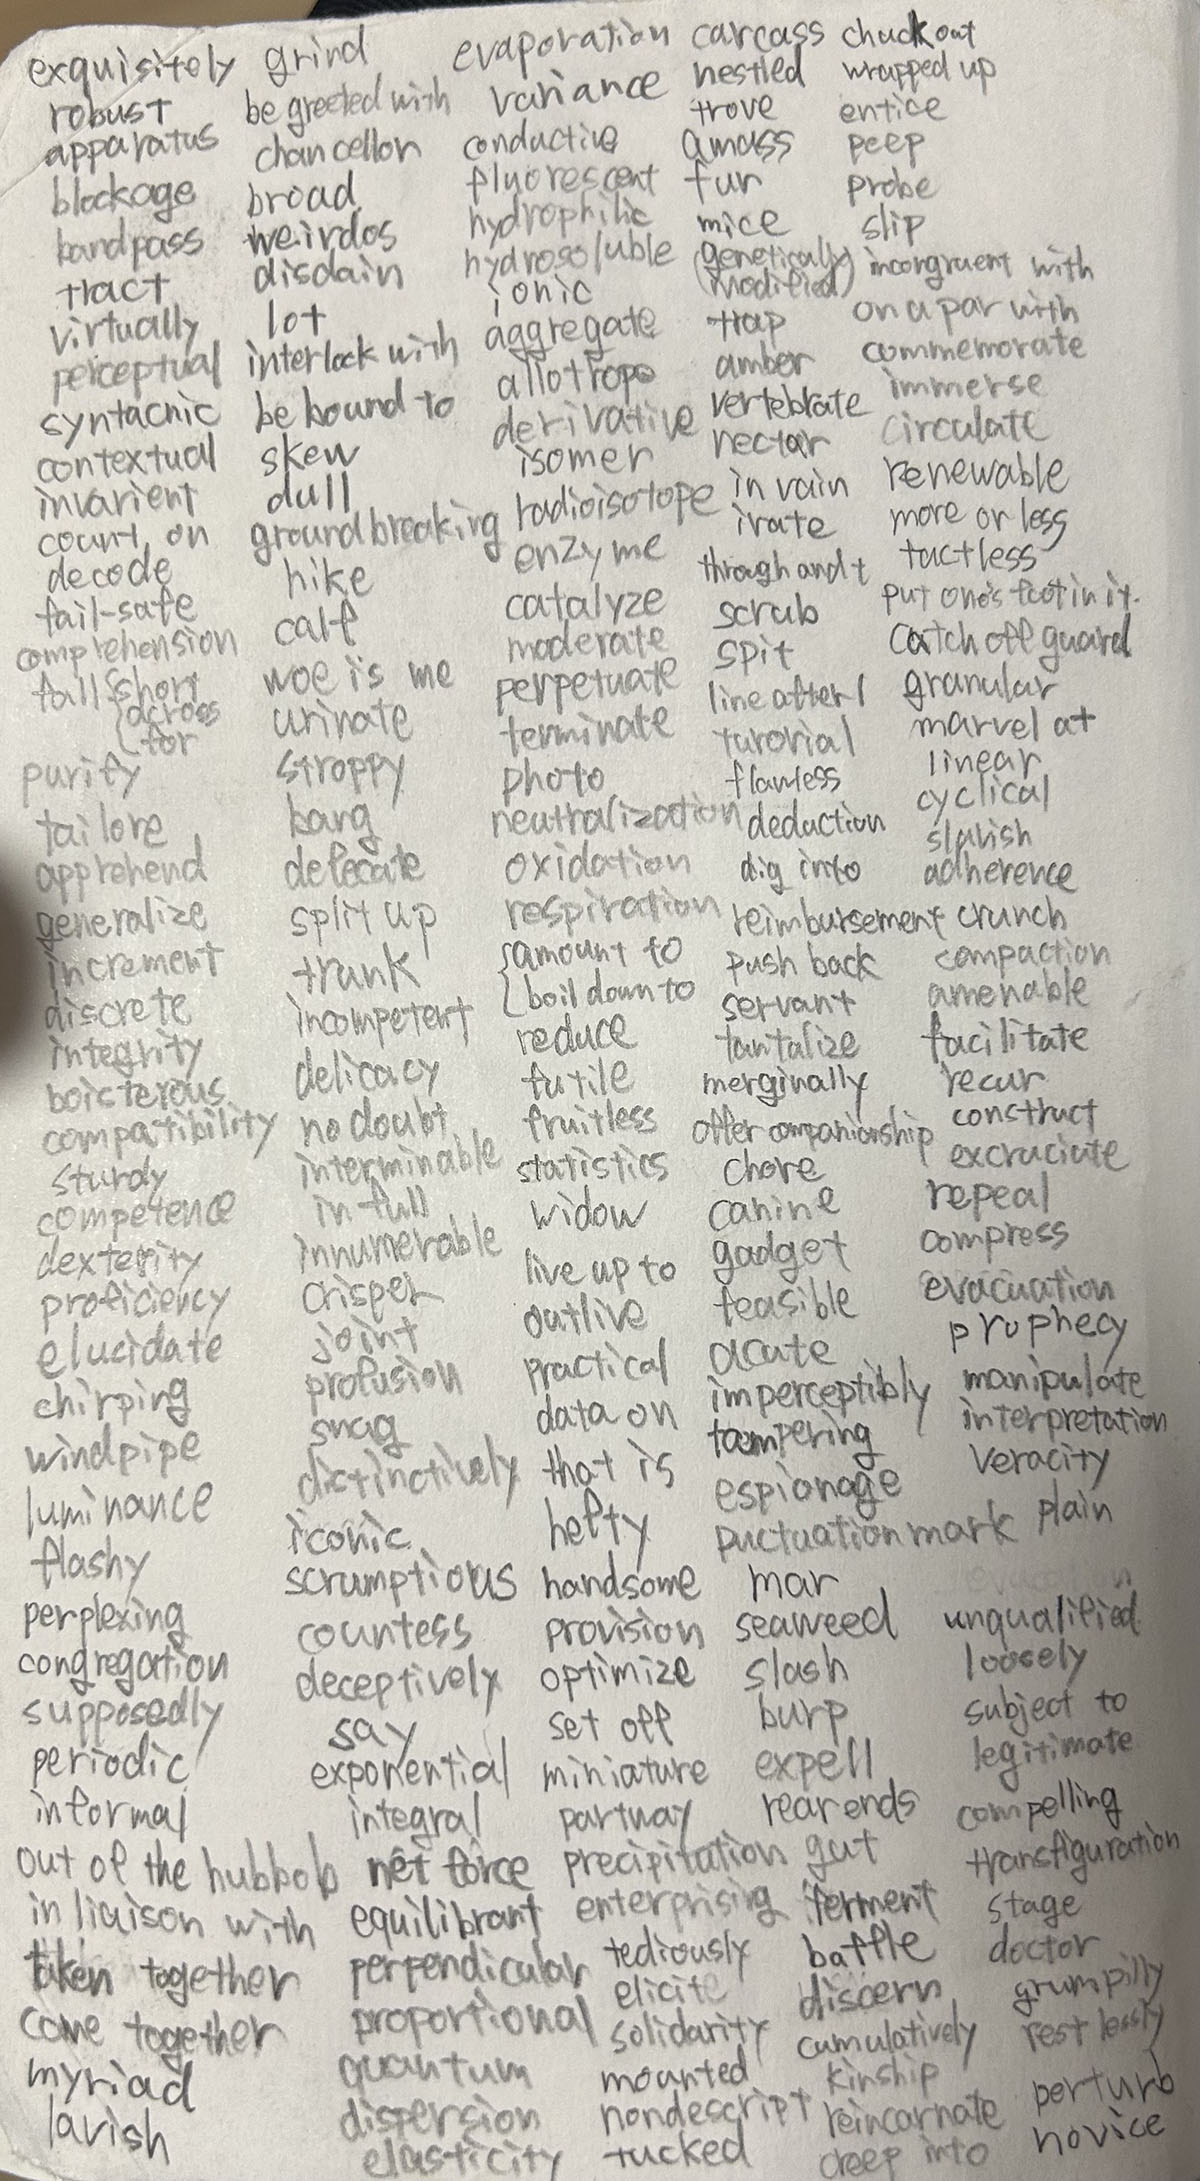 exquisitely
robust
apparatus
blockage
bandpass
tract
virtually
perceptual
syntacnic
contextual
invarient
count on
decode
fail-safe
comprehension
fall short
across
for
purify
tailore
apprehend
generalize
increment
discrete
integrity
boisterous
compatibility
sturdy
competence
dexterity
proficiency
elucidate
chirping
windpipe
luminance
flashy
perplexing
congregation
supposedly
periodic
informal
out of the hubbob
in liaison with
taken together
come together
myriad
lavish
grind
be greeted with
chancellor
broad
weirdos
disdain
lot
interlock with
be bound to
skew
dull
groundbreaking
hike
calf
woe is me
urinate
stroppy
barg
defecate
split up
trunk
incompetent
delicacy
no doubt
interminable
in full
innumerable
crisper
joint
profusion
snag
distinctively
iconic
scrumptious
countess
deceptively
say
exponential
integral
net force
equilibrant
perpendicular
proportional
quantum
dispersion
elasticity
evaporation
variance
conductive
fluorescent
hydrophilic
hydrosoluble
ionic
aggregate
allotrope
derivative
isomer
radioisotope
enzyme
catalyze
moderate
perpetuate
terminate
photo
neutralization
oxidation
respiration
amount to
boil down to
reduce
futile
fruitless
statistics
widow
live up to
outlive
practical
data on
that is
hefty
handsome
provision
optimize
set off
miniature
partway
precipitation
enterprising
tediously
elicite
solidarity
mounted
nondescript
tucked
carcass
nestled
trove
amass
fur
mice
(genetically
modified)
trap
amber
vertebrate
nectar
in vain
irate
through and t
scrub
spit
line after l
turorial
flawless
deduction
dig into
reimbursement
push back
servant
tantalize
merginally
offer companionship
chore
canine
gadget
feasible
acute
imperceptibly
tampering
espionage
puctuation mark
mar
seaweed
slash
burp
expell
rear ends
gut
ferment
baffle
discern
cumulatively
kinship
reincarnate
creep into
chuck out
wrapped up
entice
peep
probe
slip
incongruent with
on a par with
commemorate
immerse
circulate
renewable
more or less
tactless
put one's foot in it.
catch off guard
granular
marvel at
linear
cyclical
slavish
adherence
crunch
compaction
amenable
facilitate
recur
construct
excruciate
repeal
compress
evacuation
prophecy
manipulate
interpretation
veracity
plain
unqualified
loosely
subject to
legitimate
compelling
transfiguration
stage
doctor
grumpilly
restlessly
perturb
novice